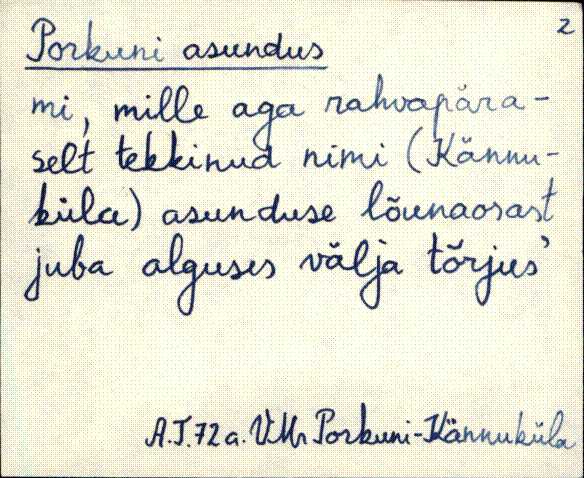 2
Porkuni asundus
mi, mille aga rahvapära-
selt tekkinud nimi (Kännu-
küla) asunduse lõunaosast
juba alguses välja tõrjus'
A.J.72a. VMr Porkuni-Kännuküla